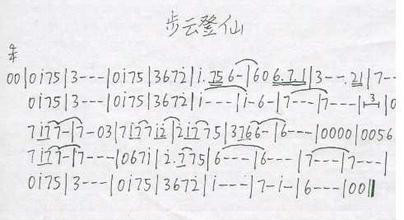 步云登仙
4/4
00|0i75|3---|0i75|3672̇|i.756-|606.7.1|3--.21|7--
0i75|3---|0i75|3672̇|i---|i-6-|7---|7---|-3-|0
7i77-|7-03|7i77i2̇|2̇i775|3766-|6---|0000|0056
7i77-|7---|067i|2.i775|6---|6---|7---|7---|
0i75|3---|0i75|3672̇|i---|7-i-|6---|00‖